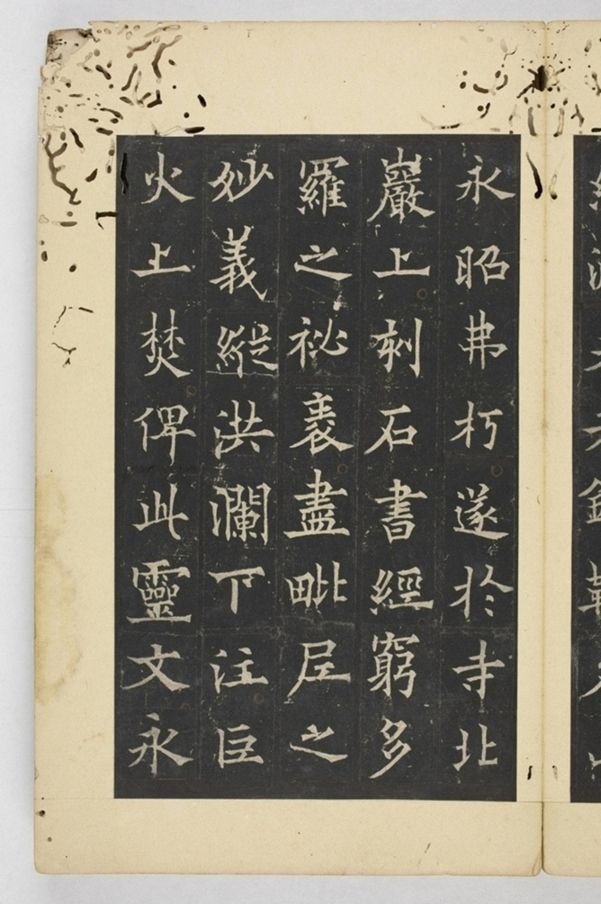 永昭弗朽遂於寺北
巖上刻石書經窮多
羅之祕袠盡毗尼之
妙義縱洪瀾下注巨
火上焚俾此靈文永